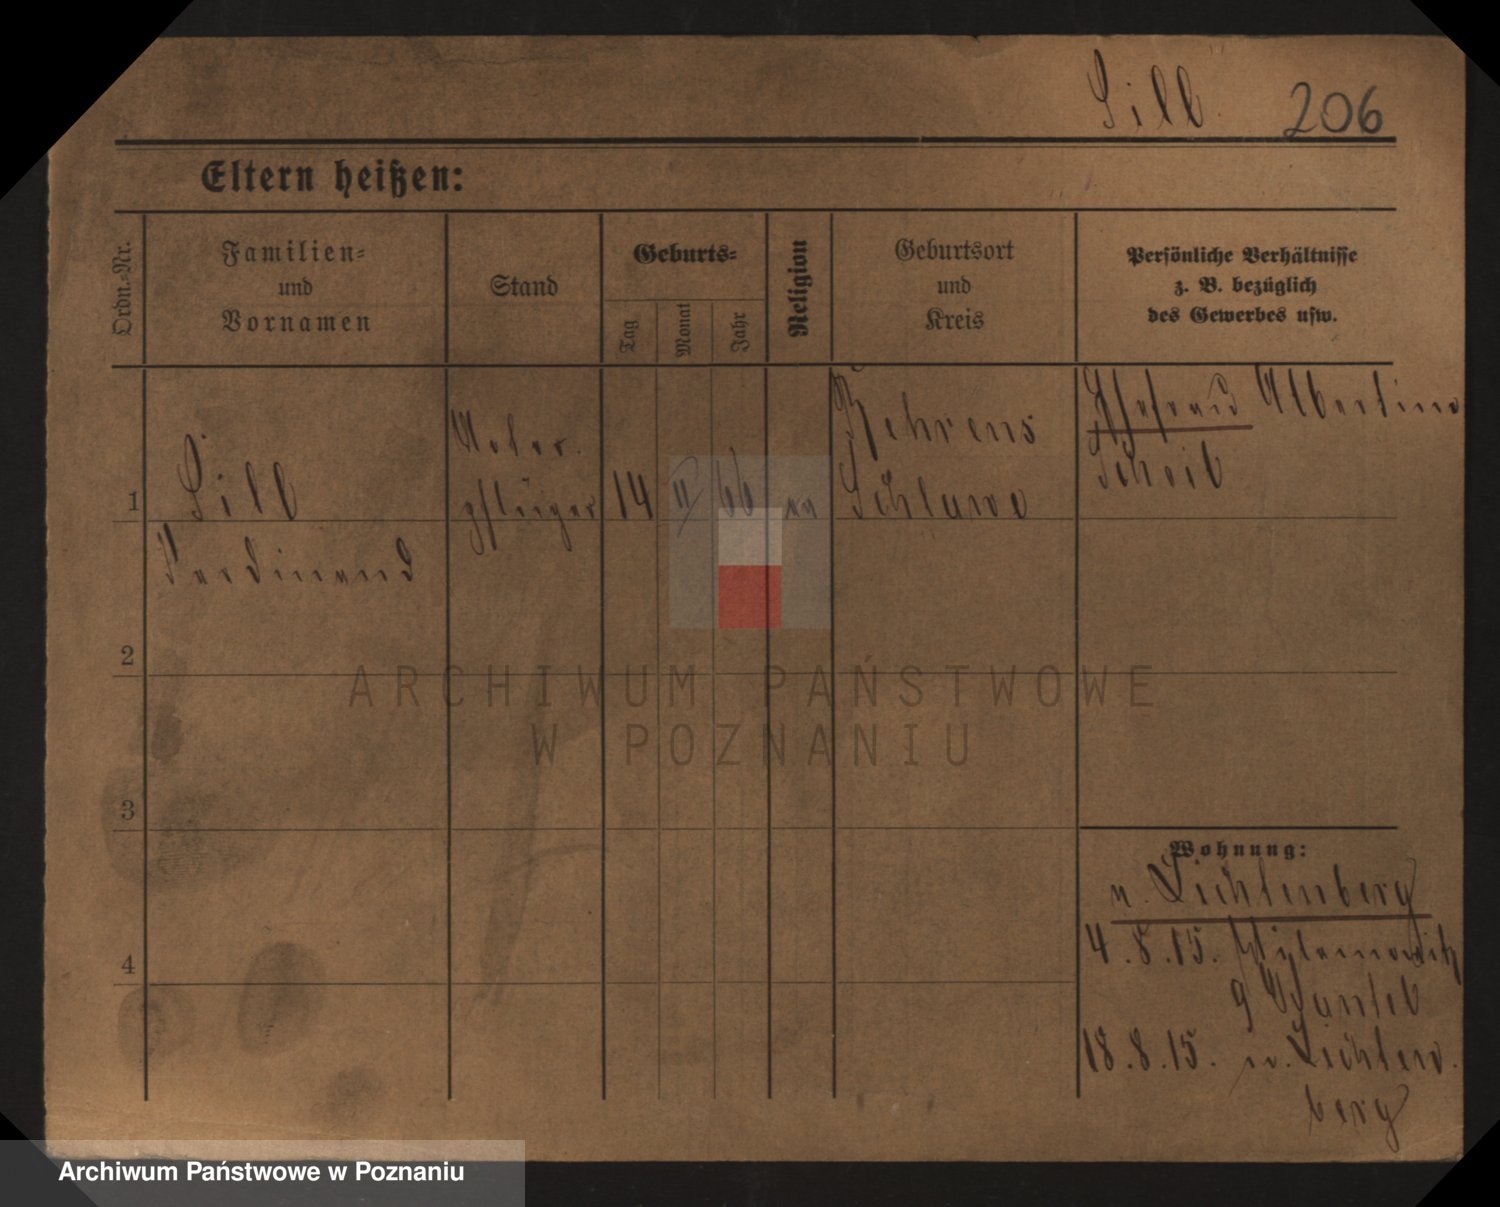 Sill
206
Eltern heißen:
Ordn.-Nr.
Familien-
und
Vornamen
Stand
Geburts-
Tag
Monat
Jahr
Religion
Geburtsort
und
Kreis
Persönliche Verhältnisse
z. B. bezüglich
des Gewerbes usw.
1
Sill
Ferdinand
pflüger
14
66
Behrens
Schlawe
Ehefrau Albertine
2
3
4
Wohnung:
n. Lichtenberg
4.8.15.
18.8.15. n. Lichten
berg
ARCHIWUM PAŃSTWOWE
W POZNANIU
Archiwum Państwowe w Poznaniu